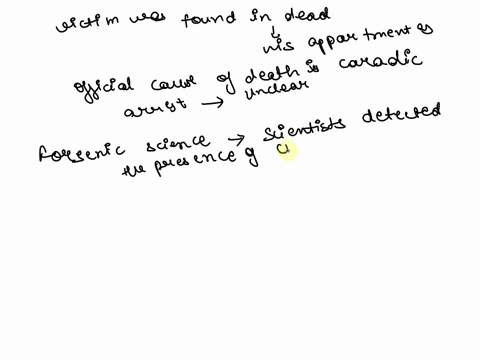 victim was found in dead
his appartment es
official cause of death is caradic
arrest → unclear
Forsenic science → scientists detected
the presence of